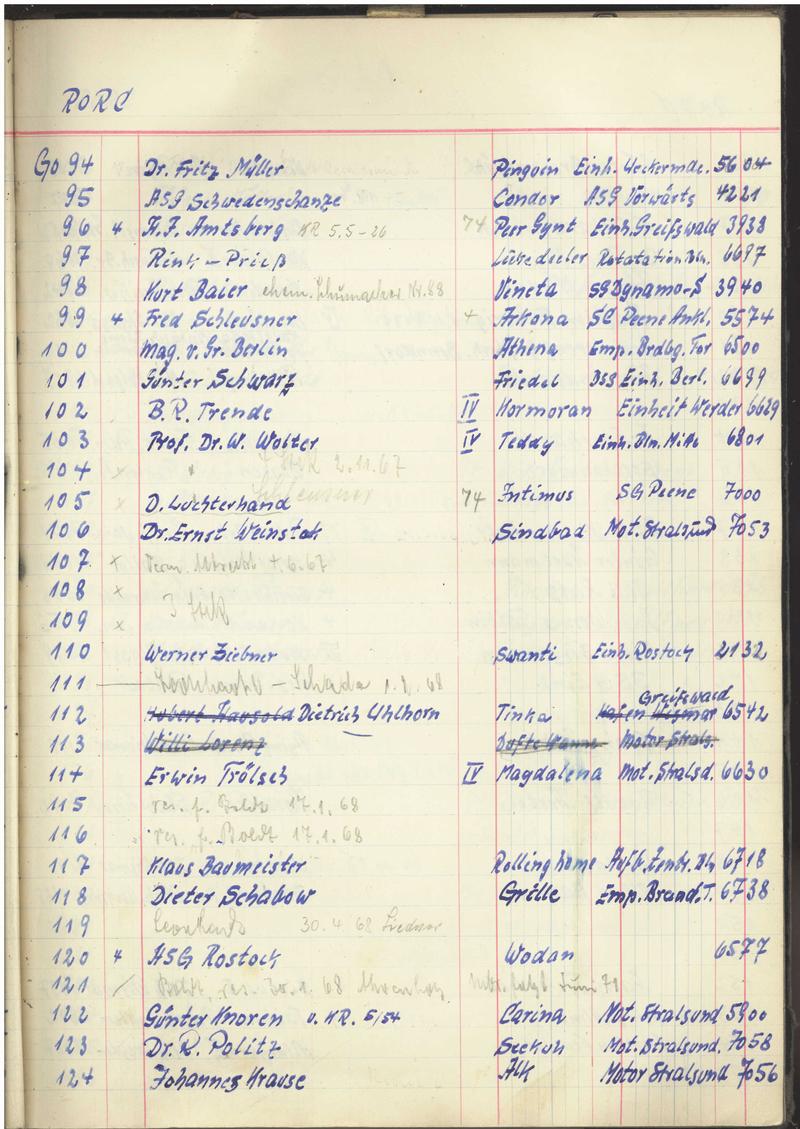 RORC
Go 94 Dr. Fritz Müller Pingoin Einh. Ueckermde. 5604
95 ASG Schwedenschanze Condor ASG Vorwärts 4221
96 4 H.F. Amtsberg KR 5,5-26 74 Peer Gynt Einh. Greifswald 3938
97 Rink - Prieß 6697
98 Kurt Baier ehem. Schumacher Nr. 88 Vineta SG Dynamo-S 3940
99 4 Fred Schleusner + Arkona SG Peene Ankl. 5574
100 Mag. v. Gr. Berlin Athena Emp. Brdbg. Tor 6500
101 Günter Schwarz Friedel DSG Einh. Berl. 6699
102 B.R. Trende IV Kormoran Einheit Werder 6629
103 Prof. Dr. W. Wolter IV Teddy Einh. Bln. Mitte 6801
104 x 2.11.67
Schleusner
105 x D. Luchterhand 74 Intimus SG Peene 7000
106 Dr. Ernst Weinstok Sindbad Mot. Stralsund 7053
107 x
108 x
3
109 x
110 Werner Ziebner Swanti Einh. Rostock 2132
111 - Schade 1.2.68
Greifswald
112 Dietrich Uhlhorn Tinka Hafen Wismar 6542
113 Willi Lorenz Motor Strals.
114 Erwin Trölsch IV Magdalena Mot. Stralsd. 6630
115 res. f. Boldt 17.1.68
116 res. f. Boldt 17.1.68
117 Klaus Baumeister Rolling home Aufb. Zentr. Bln 6718
118 Dieter Schabow Grille Emp. Brand. T. 6738
119 Leonhardt 30.4.68
120 4 ASG Rostock Wodan 6577
121 / Boldt, res. 30.1.68 folgt Juni 71
122 Günter Knoren v. KR. 5/54 Carina Mot. Stralsund 5900
123 Dr. R. Politz Seekuh Mot. Stralsund. 7058
124 Johannes Krause Alk Motor Stralsund 7056